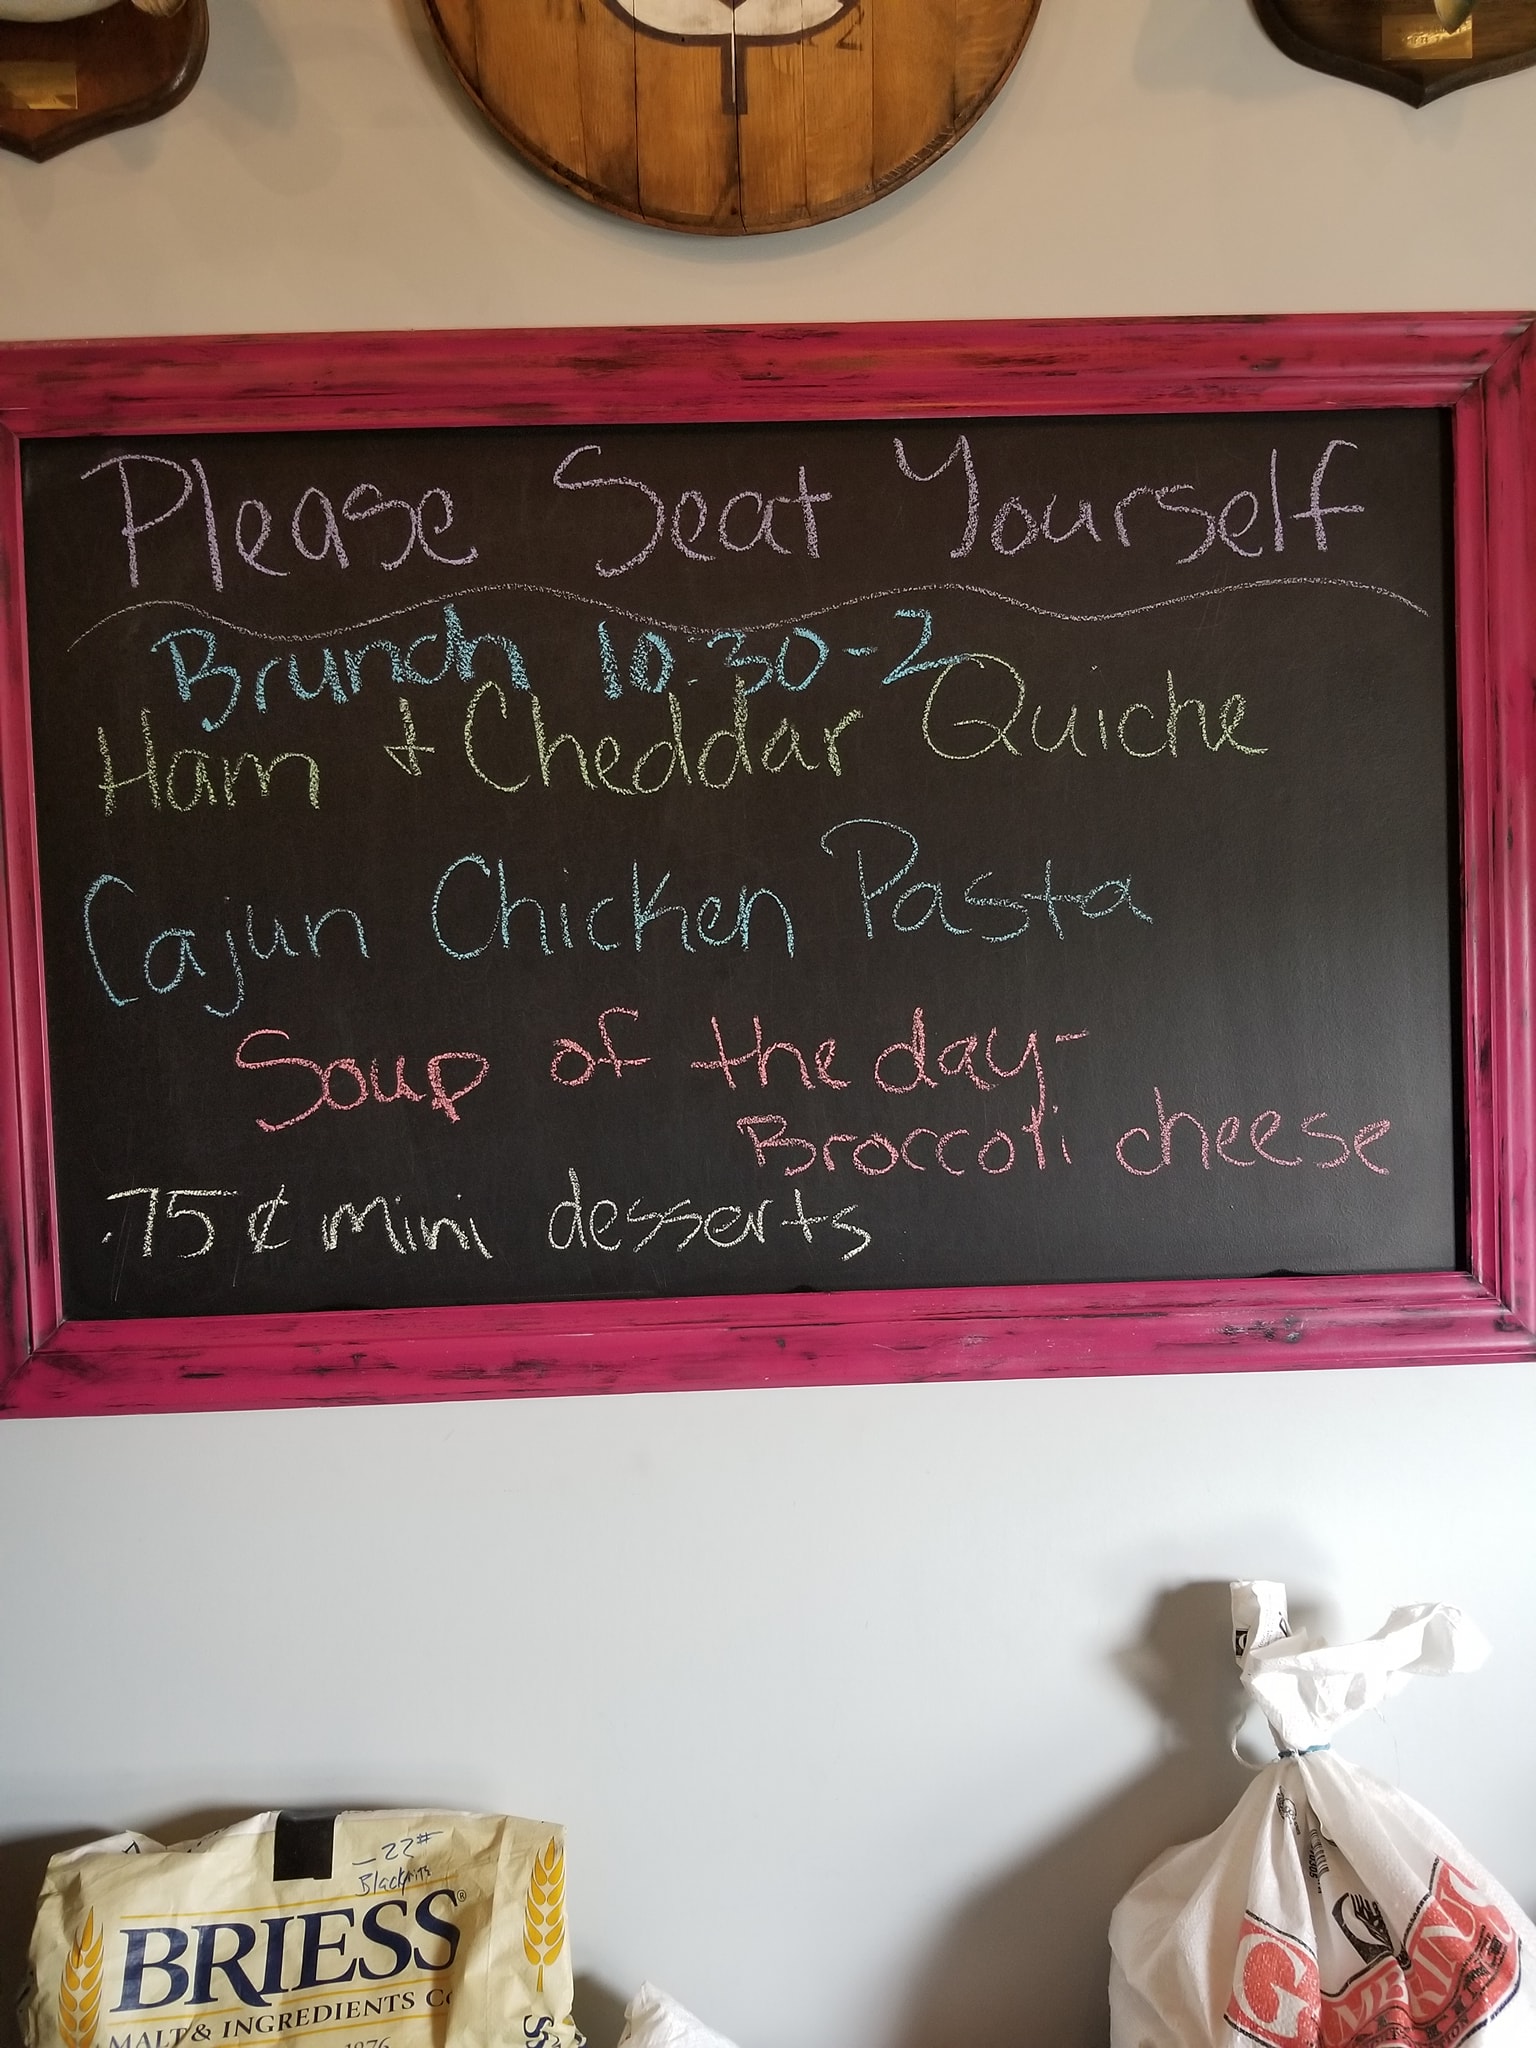 Please Seat Yourself
Brunch 10:30-2
Ham + Cheddar Quiche
Cajun Chicken Pasta
Soup of the day-
Broccoli cheese
.75¢ mini desserts
22#
BRIESS®
MALT & INGREDIENTS Co
1976
GAMBRINUS